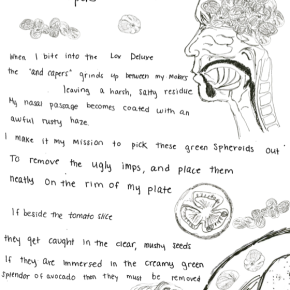 When I bite into the Lox Deluxe
the "and capers" grinds up between my molars
leaving a harsh, salty residue
My nasal passage becomes coated with an
awful rusty haze.
I make it my mission to pick these green spheroids out
To remove the ugly imps, and place them
neatly on the rim of my plate
If beside the tomato slice
they get caught in the clear, mushy seeds
If they are immersed in the creamy green
splendor of avocado then they must be removed